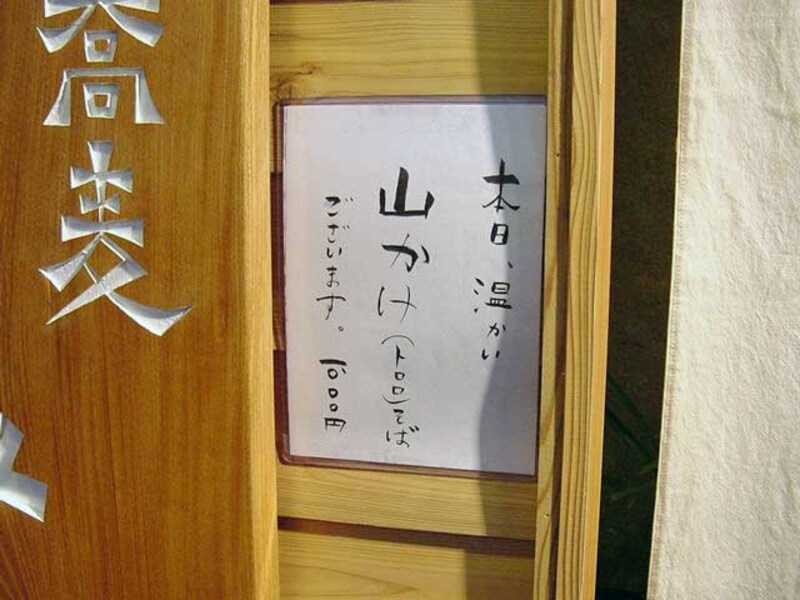 本日、温かい
山かけ(トロロ)そば
ございます。一〇〇〇円
蕎麦